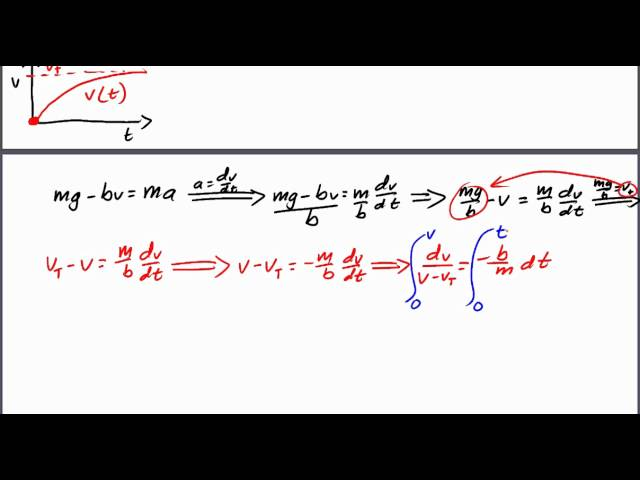 v_t
v
v(t)
t
mg - bv = ma \xRightarrow{a = \frac{dv}{dt}} \frac{mg - bv}{b} = \frac{m}{b} \frac{dv}{dt} ⟹ \frac{mg}{b} - v = \frac{m}{b} \frac{dv}{dt} \xRightarrow{\frac{mg}{b} = v_t}
v_T - v = \frac{m}{b} \frac{dv}{dt} ⟹ v - v_T = -\frac{m}{b} \frac{dv}{dt} ⟹ \int_0^v \frac{dv}{v - v_T} = \int_0^t -\frac{b}{m} dt